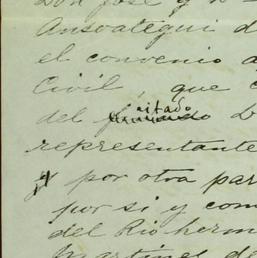 Don José y
Ansoategui d
el convenio a
Civil, que c
citado
del D
representante
y por otra par
por si y com
del Rio herm
Martines de